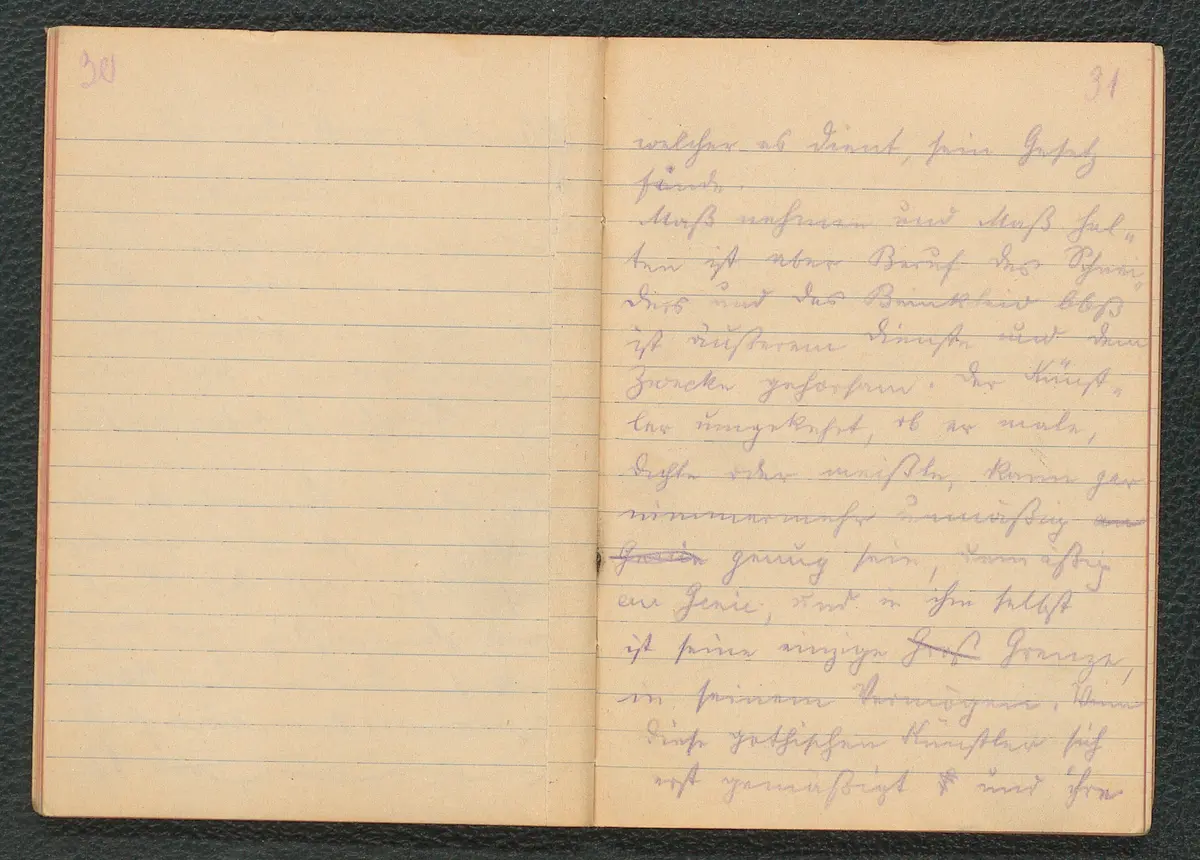 30
31
welcher es dient, sein Gesetz
fände.
Maß nehmen und Maß hal„
ten ist aber Beruf des Schnei„
ders und das Beinkleid bloß
ist äußerem Dienste und dem
Zwecke gehorsam. Der Künst„
ler umgekehrt, ob er male,
dichte oder meißle, kann gar
nimmermehr unmäßig an
Genie genug sein, unmäßig
an Genie, und in ihm selbst
ist seine einzige Grenze,
in seinem Vermögen. Wenn
diese gothischen Künstler sich
erst gemäßigt und ihre